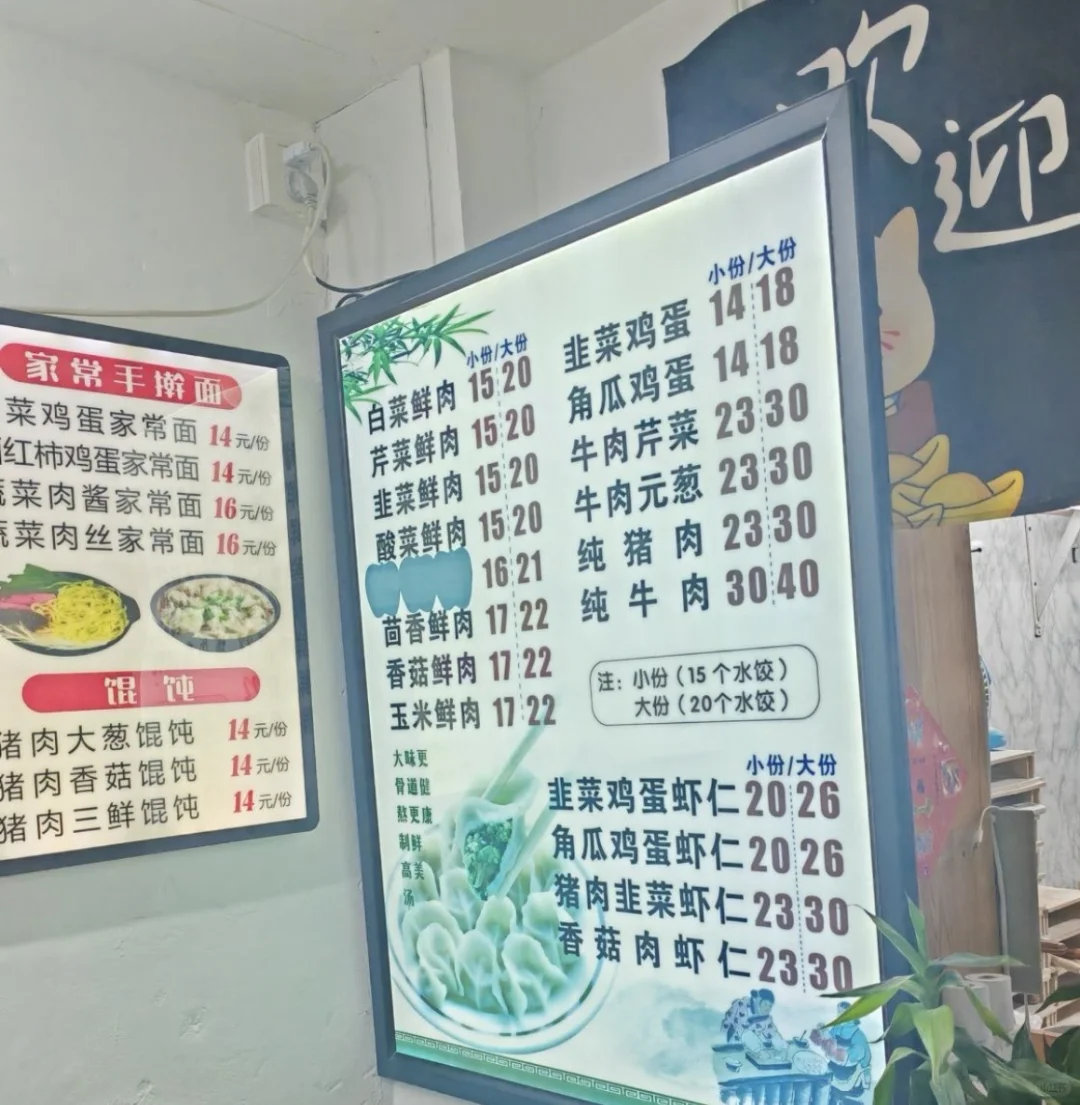 欢迎
家常手擀面
菜鸡蛋家常面 14元/份
红柿鸡蛋家常面 14元/份
蔬菜肉酱家常面 16元/份
蔬菜肉丝家常面 16元/份
馄饨
猪肉大葱馄饨 14元/份
猪肉香菇馄饨 14元/份
猪肉三鲜馄饨 14元/份
小份/大份
白菜鲜肉 15 20
芹菜鲜肉 15 20
韭菜鲜肉 15 20
酸菜鲜肉 15 20
16 21
茴香鲜肉 17 22
香菇鲜肉 17 22
玉米鲜肉 17 22
大骨熬制高汤
味道更鲜美
更健康
小份/大份
韭菜鸡蛋 14 18
角瓜鸡蛋 14 18
牛肉芹菜 23 30
牛肉元葱 23 30
纯猪肉 23 30
纯牛肉 30 40
注：小份（15个水饺）
大份（20个水饺）
小份/大份
韭菜鸡蛋虾仁 20 26
角瓜鸡蛋虾仁 20 26
猪肉韭菜虾仁 23 30
香菇肉虾仁 23 30